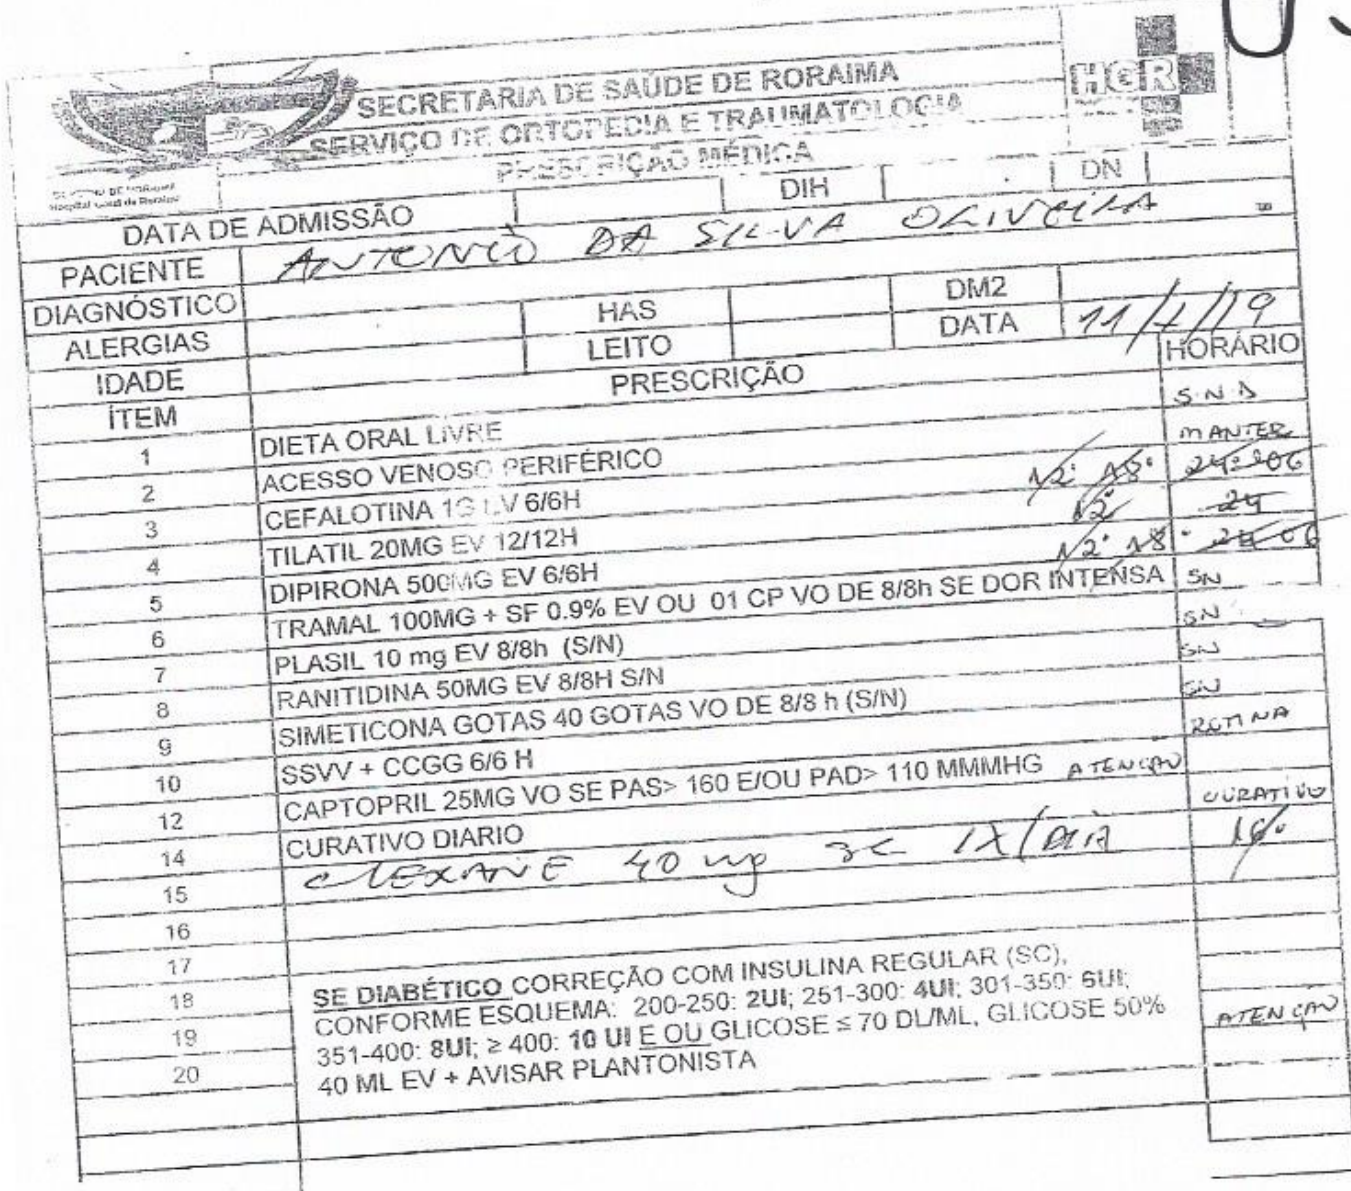 SECRETARIA DE SAÚDE DE RORAIMA
SERVIÇO DE ORTOPEDIA E TRAUMATOLOGIA
PRESCRIÇÃO MÉDICA
HGR
GOVERNO DE RORAIMA
Hospital Geral de Roraima
DATA DE ADMISSÃO DIH DN
PACIENTE ANTONIO DA SILVA OLIVEIRA
DIAGNÓSTICO HAS DM2
ALERGIAS LEITO DATA 11/1/19
IDADE PRESCRIÇÃO HORÁRIO
ÍTEM
1 DIETA ORAL LIVRE S.N.D
2 ACESSO VENOSO PERIFÉRICO MANTER
3 CEFALOTINA 1G EV 6/6H 12 18 24 06
4 TILATIL 20MG EV 12/12H 12 24
5 DIPIRONA 500MG EV 6/6H 12 18 24 06
6 TRAMAL 100MG + SF 0.9% EV OU 01 CP VO DE 8/8h SE DOR INTENSA SN
7 PLASIL 10 mg EV 8/8h (S/N) SN
8 RANITIDINA 50MG EV 8/8H S/N SN
9 SIMETICONA GOTAS 40 GOTAS VO DE 8/8 h (S/N) SN
10 SSVV + CCGG 6/6 H ROTINA
12 CAPTOPRIL 25MG VO SE PAS> 160 E/OU PAD> 110 MMMHG ATENÇÃO
14 CURATIVO DIARIO CURATIVO
15 CLEXANE 40 mg SC 1X/DIA
16
17
18 SE DIABÉTICO CORREÇÃO COM INSULINA REGULAR (SC),
19 CONFORME ESQUEMA: 200-250: 2UI; 251-300: 4UI; 301-350: 6UI;
20 351-400: 8UI; ≥ 400: 10 UI E OU GLICOSE ≤ 70 DL/ML, GLICOSE 50% ATENÇÃO
40 ML EV + AVISAR PLANTONISTA